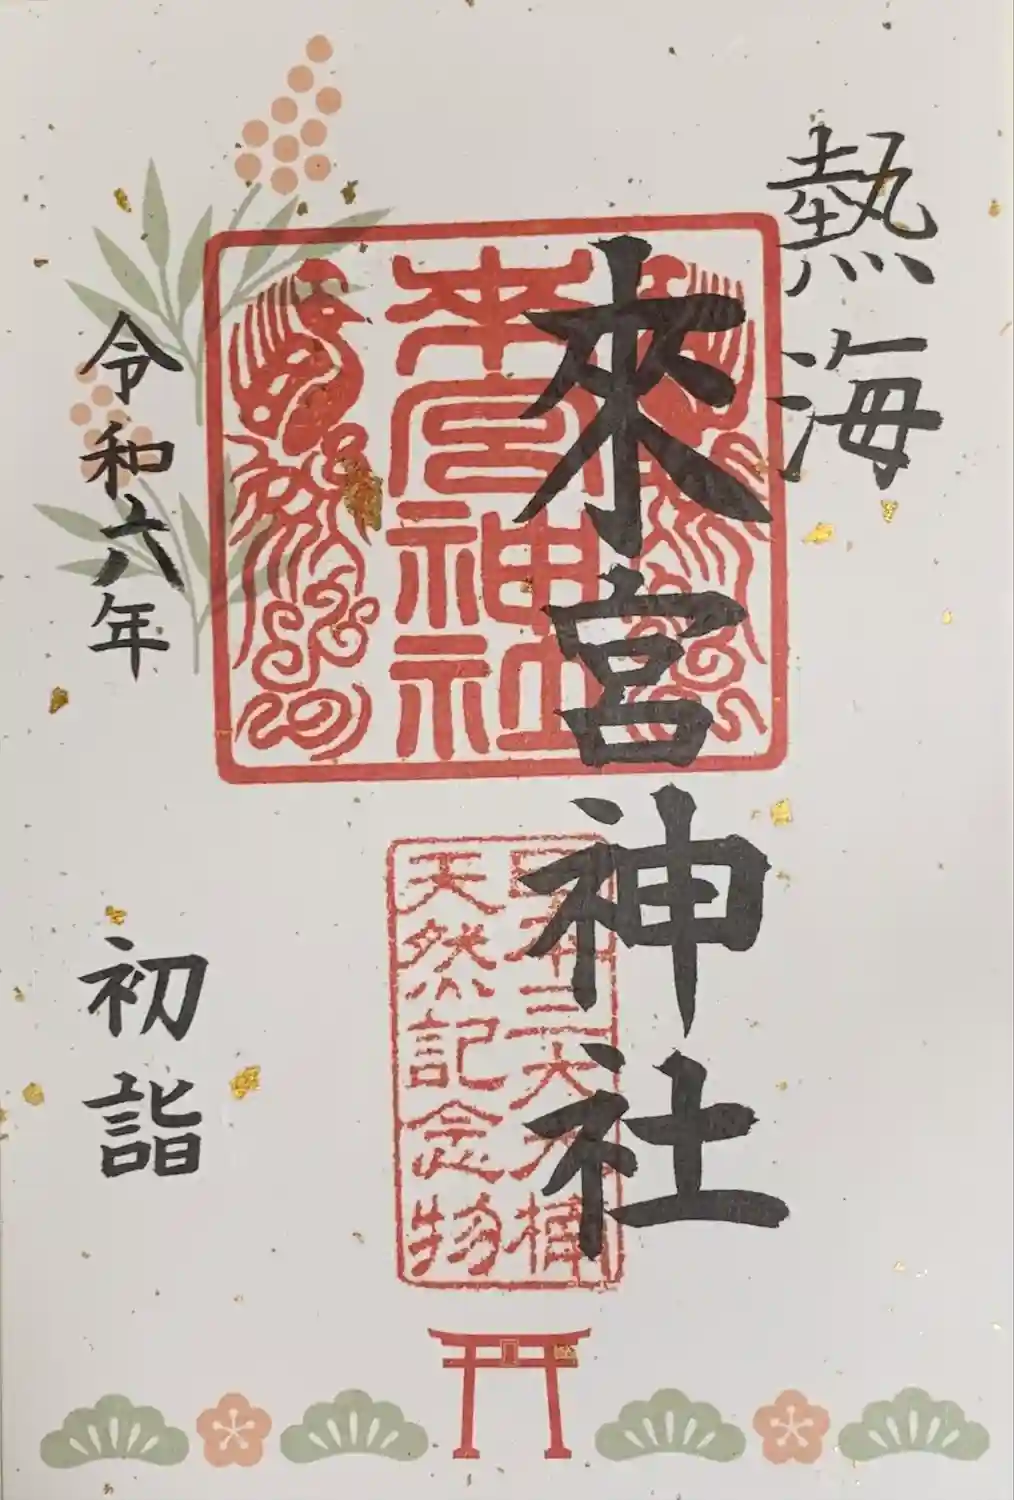 熱海
來宮神社
來宮神社
日本三大大楠
天然記念物
令和六年
初詣